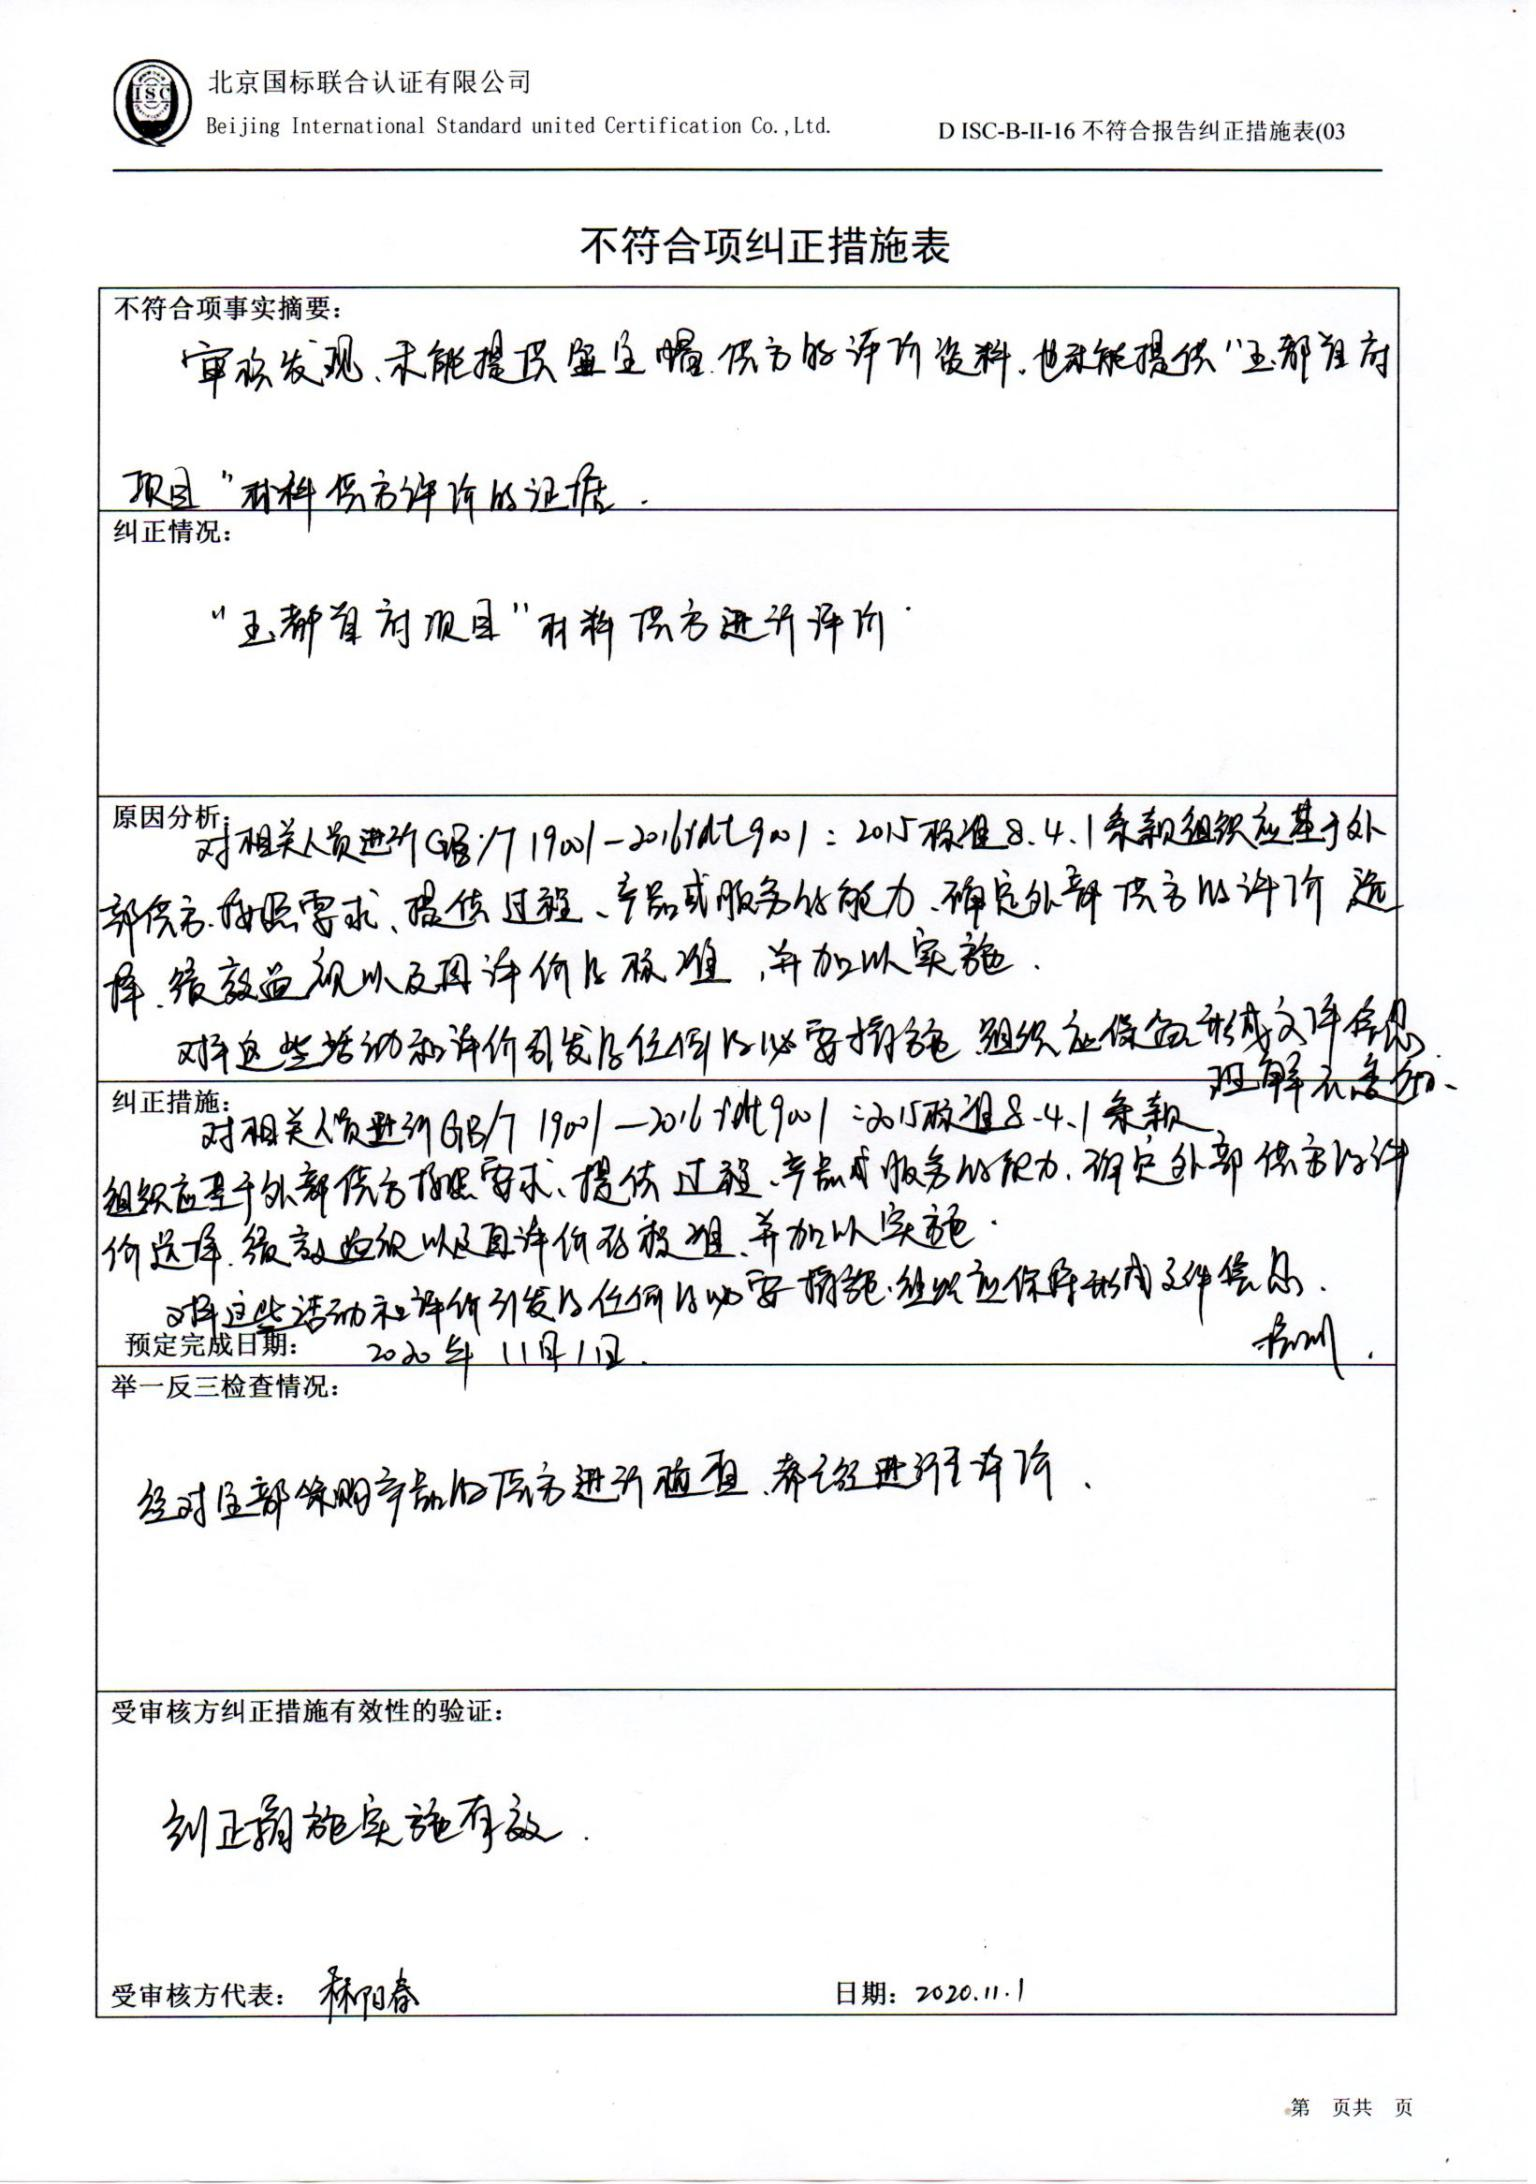 ISC
北京国标联合认证有限公司
Beijing International Standard united Certification Co.,Ltd.
D ISC-B-II-16 不符合报告纠正措施表(03
不符合项纠正措施表
不符合项事实摘要：
审核发现、未能提供安全帽供方的评价资料，也未能提供“玉都首府
项目”材料供方评价的证据．
纠正情况：
“玉都首府项目”材料供方进行评价．
原因分析：
对相关人员进行GB/T 19001-2016idt9001：2015标准8.4.1条款组织应基于外
部供方、按照要求、提供过程、产品或服务的能力、确定外部供方的评价 选
择、绩效监视以及再评价的标准，并加以实施．
对于这些活动和评价引发的任何的必要措施 组织应保留形成文件信息
理解不透彻．
纠正措施：
对相关人员进行GB/T 19001—2016 idt9001：2015标准8.4.1条款
组织应基于外部供方按照要求、提供过程、产品或服务的能力．确定外部供方的评
价选择．绩效监视以及再评价的标准、并加以实施．
对于这些活动和评价引发的任何的必要措施．组织应保持形成文件信息．
培训．
预定完成日期： 2020年11月1日．
举一反三检查情况：
经对全部采购产品的供方进行检查、都已经进行了评价．
受审核方纠正措施有效性的验证：
纠正措施实施有效．
受审核方代表： 林阳春 日期：2020.11.1
第 页共 页